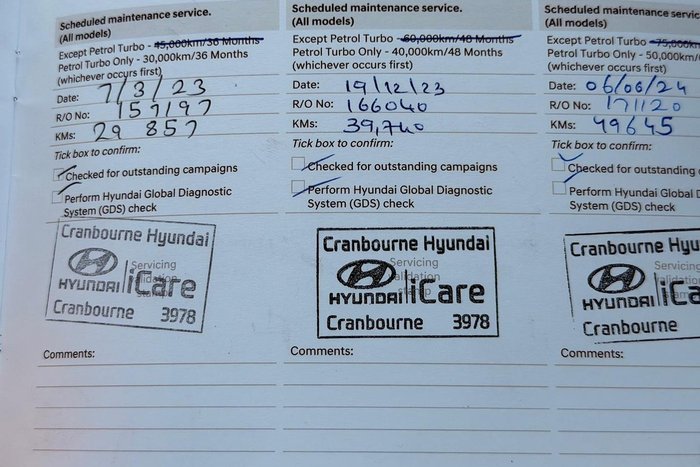 Scheduled maintenance service.
(All models)
Except Petrol Turbo - 45,000km/36 Months
Petrol Turbo Only - 30,000km/36 Months
(whichever occurs first)
Date: 7/3/23
R/O No: 157197
KMs: 29 857
Tick box to confirm:
Checked for outstanding campaigns
Perform Hyundai Global Diagnostic
System (GDS) check
Cranbourne Hyundai
Servicing
HYUNDAI iCare
Cranbourne 3978
Comments:
Scheduled maintenance service.
(All models)
Except Petrol Turbo - 60,000km/48 Months
Petrol Turbo Only - 40,000km/48 Months
(whichever occurs first)
Date: 19/12/23
R/O No: 166040
KMs: 39,740
Tick box to confirm:
Checked for outstanding campaigns
Perform Hyundai Global Diagnostic
System (GDS) check
Cranbourne Hyundai
Servicing
HYUNDAI iCare
Cranbourne 3978
Comments:
Scheduled maintenance
(All models)
Except Petrol Turbo -
Petrol Turbo Only - 50,000km/
(whichever occurs first)
Date: 06/06/24
R/O No: 171120
KMs: 49645
Tick box to confirm:
Checked for outstanding
Perform Hyundai Global
System (GDS) check
Cranbourne
Servicing
HYUNDAI
Cranbourne
Comments: